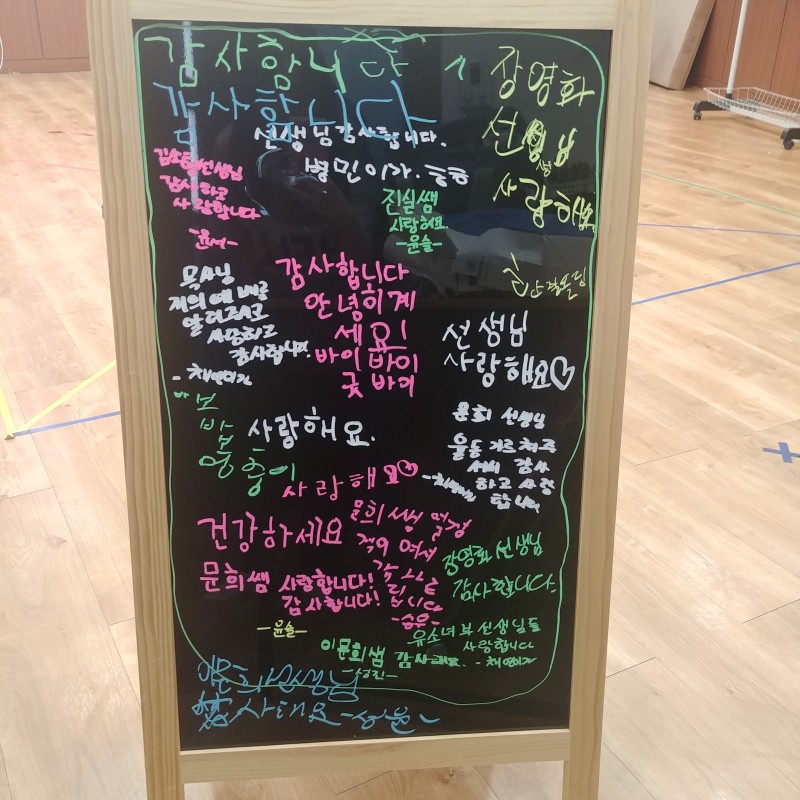 감사합니다
감사합니다
장영화
선생님
사랑해요
선생님 감사합니다.
병민이가.
선생님
감사하고
사랑합니다
윤서-
진실쌤
사랑해요
-윤슬-
감사합니다
안녕히계
세요!
바이 바이
굿 바이
목사님
저희에게
알려주시고
사랑하고
감사합니다.
선생님
사랑해요♡
바보
밥
멍충이
사랑해요.
문희 선생님
율동 가르쳐주
셔서 감사
하고 사랑
합니다
사랑해요♡
건강하세요
문희쌤
사랑합니다!
감사합니다!
-윤슬-
문희쌤 열정
적이여서
감사드
립니다
-승우-
장영화 선생님
감사합니다.
유소녀부 선생님들
사랑합니다
이문희쌤 감사해요.
-성진-
선생님